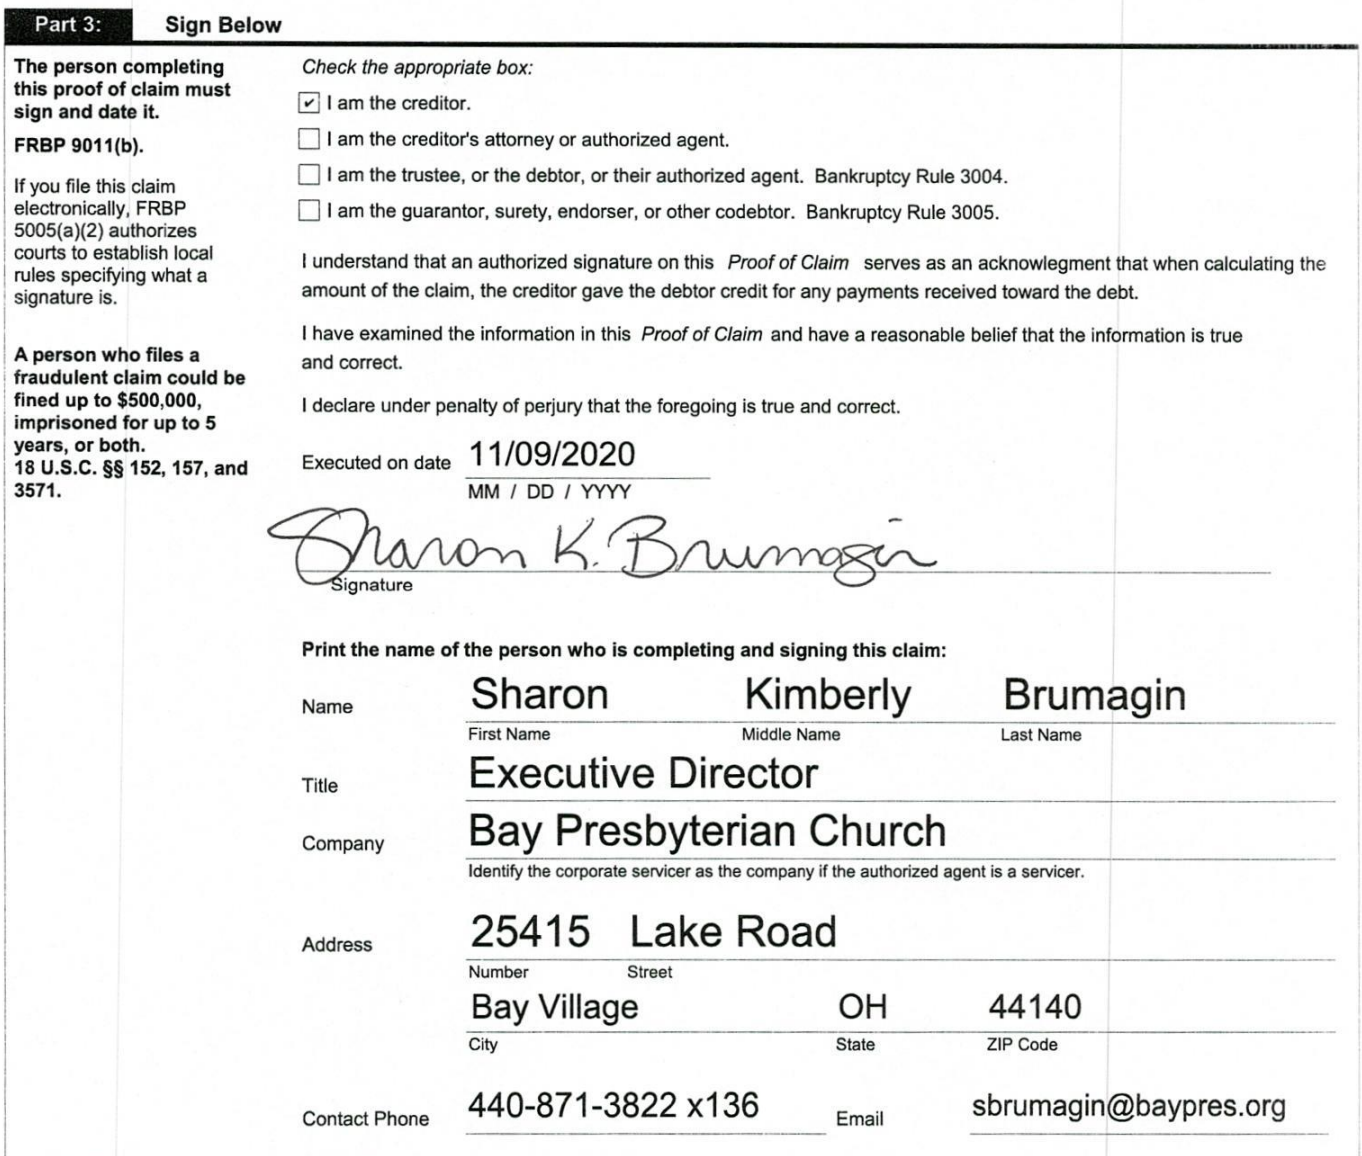 Part 3: Sign Below
The person completing
this proof of claim must
sign and date it.
FRBP 9011(b).
If you file this claim
electronically, FRBP
5005(a)(2) authorizes
courts to establish local
rules specifying what a
signature is.
A person who files a
fraudulent claim could be
fined up to $500,000,
imprisoned for up to 5
years, or both.
18 U.S.C. §§ 152, 157, and
3571.
Check the appropriate box:
I am the creditor.
I am the creditor's attorney or authorized agent.
I am the trustee, or the debtor, or their authorized agent. Bankruptcy Rule 3004.
I am the guarantor, surety, endorser, or other codebtor. Bankruptcy Rule 3005.
I understand that an authorized signature on this Proof of Claim serves as an acknowlegment that when calculating the
amount of the claim, the creditor gave the debtor credit for any payments received toward the debt.
I have examined the information in this Proof of Claim and have a reasonable belief that the information is true
and correct.
I declare under penalty of perjury that the foregoing is true and correct.
Executed on date 11/09/2020
MM / DD / YYYY
Sharon K. Brumagin
Signature
Print the name of the person who is completing and signing this claim:
Name Sharon Kimberly Brumagin
First Name Middle Name Last Name
Title Executive Director
Company Bay Presbyterian Church
Identify the corporate servicer as the company if the authorized agent is a servicer.
Address 25415 Lake Road
Number Street
Bay Village OH 44140
City State ZIP Code
Contact Phone 440-871-3822 x136 Email sbrumagin@baypres.org